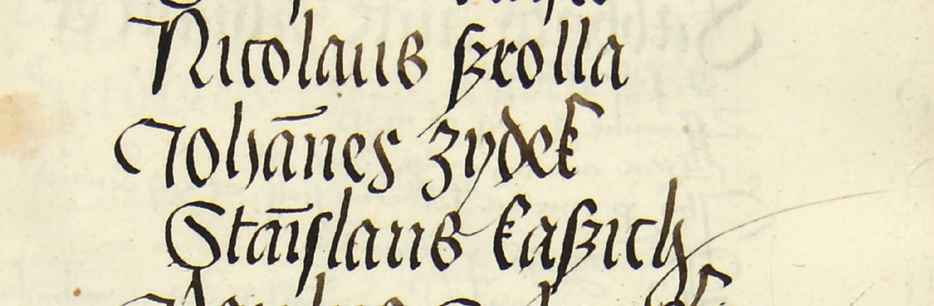 Nicolaus ſzkolla
Johānes zydek
Stāiſlaus kaſzich